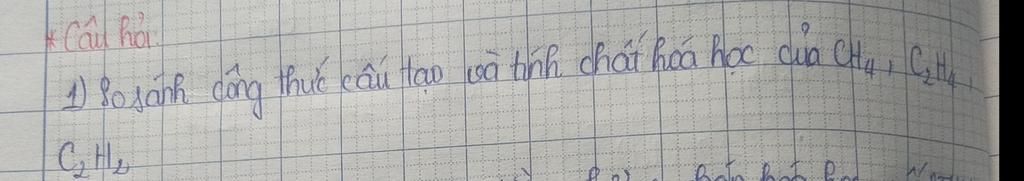 * Câu hỏi.
1) So sánh công thức cấu tạo và tính chất hoá học của CH₄, C₂H₄,
C₂H₂